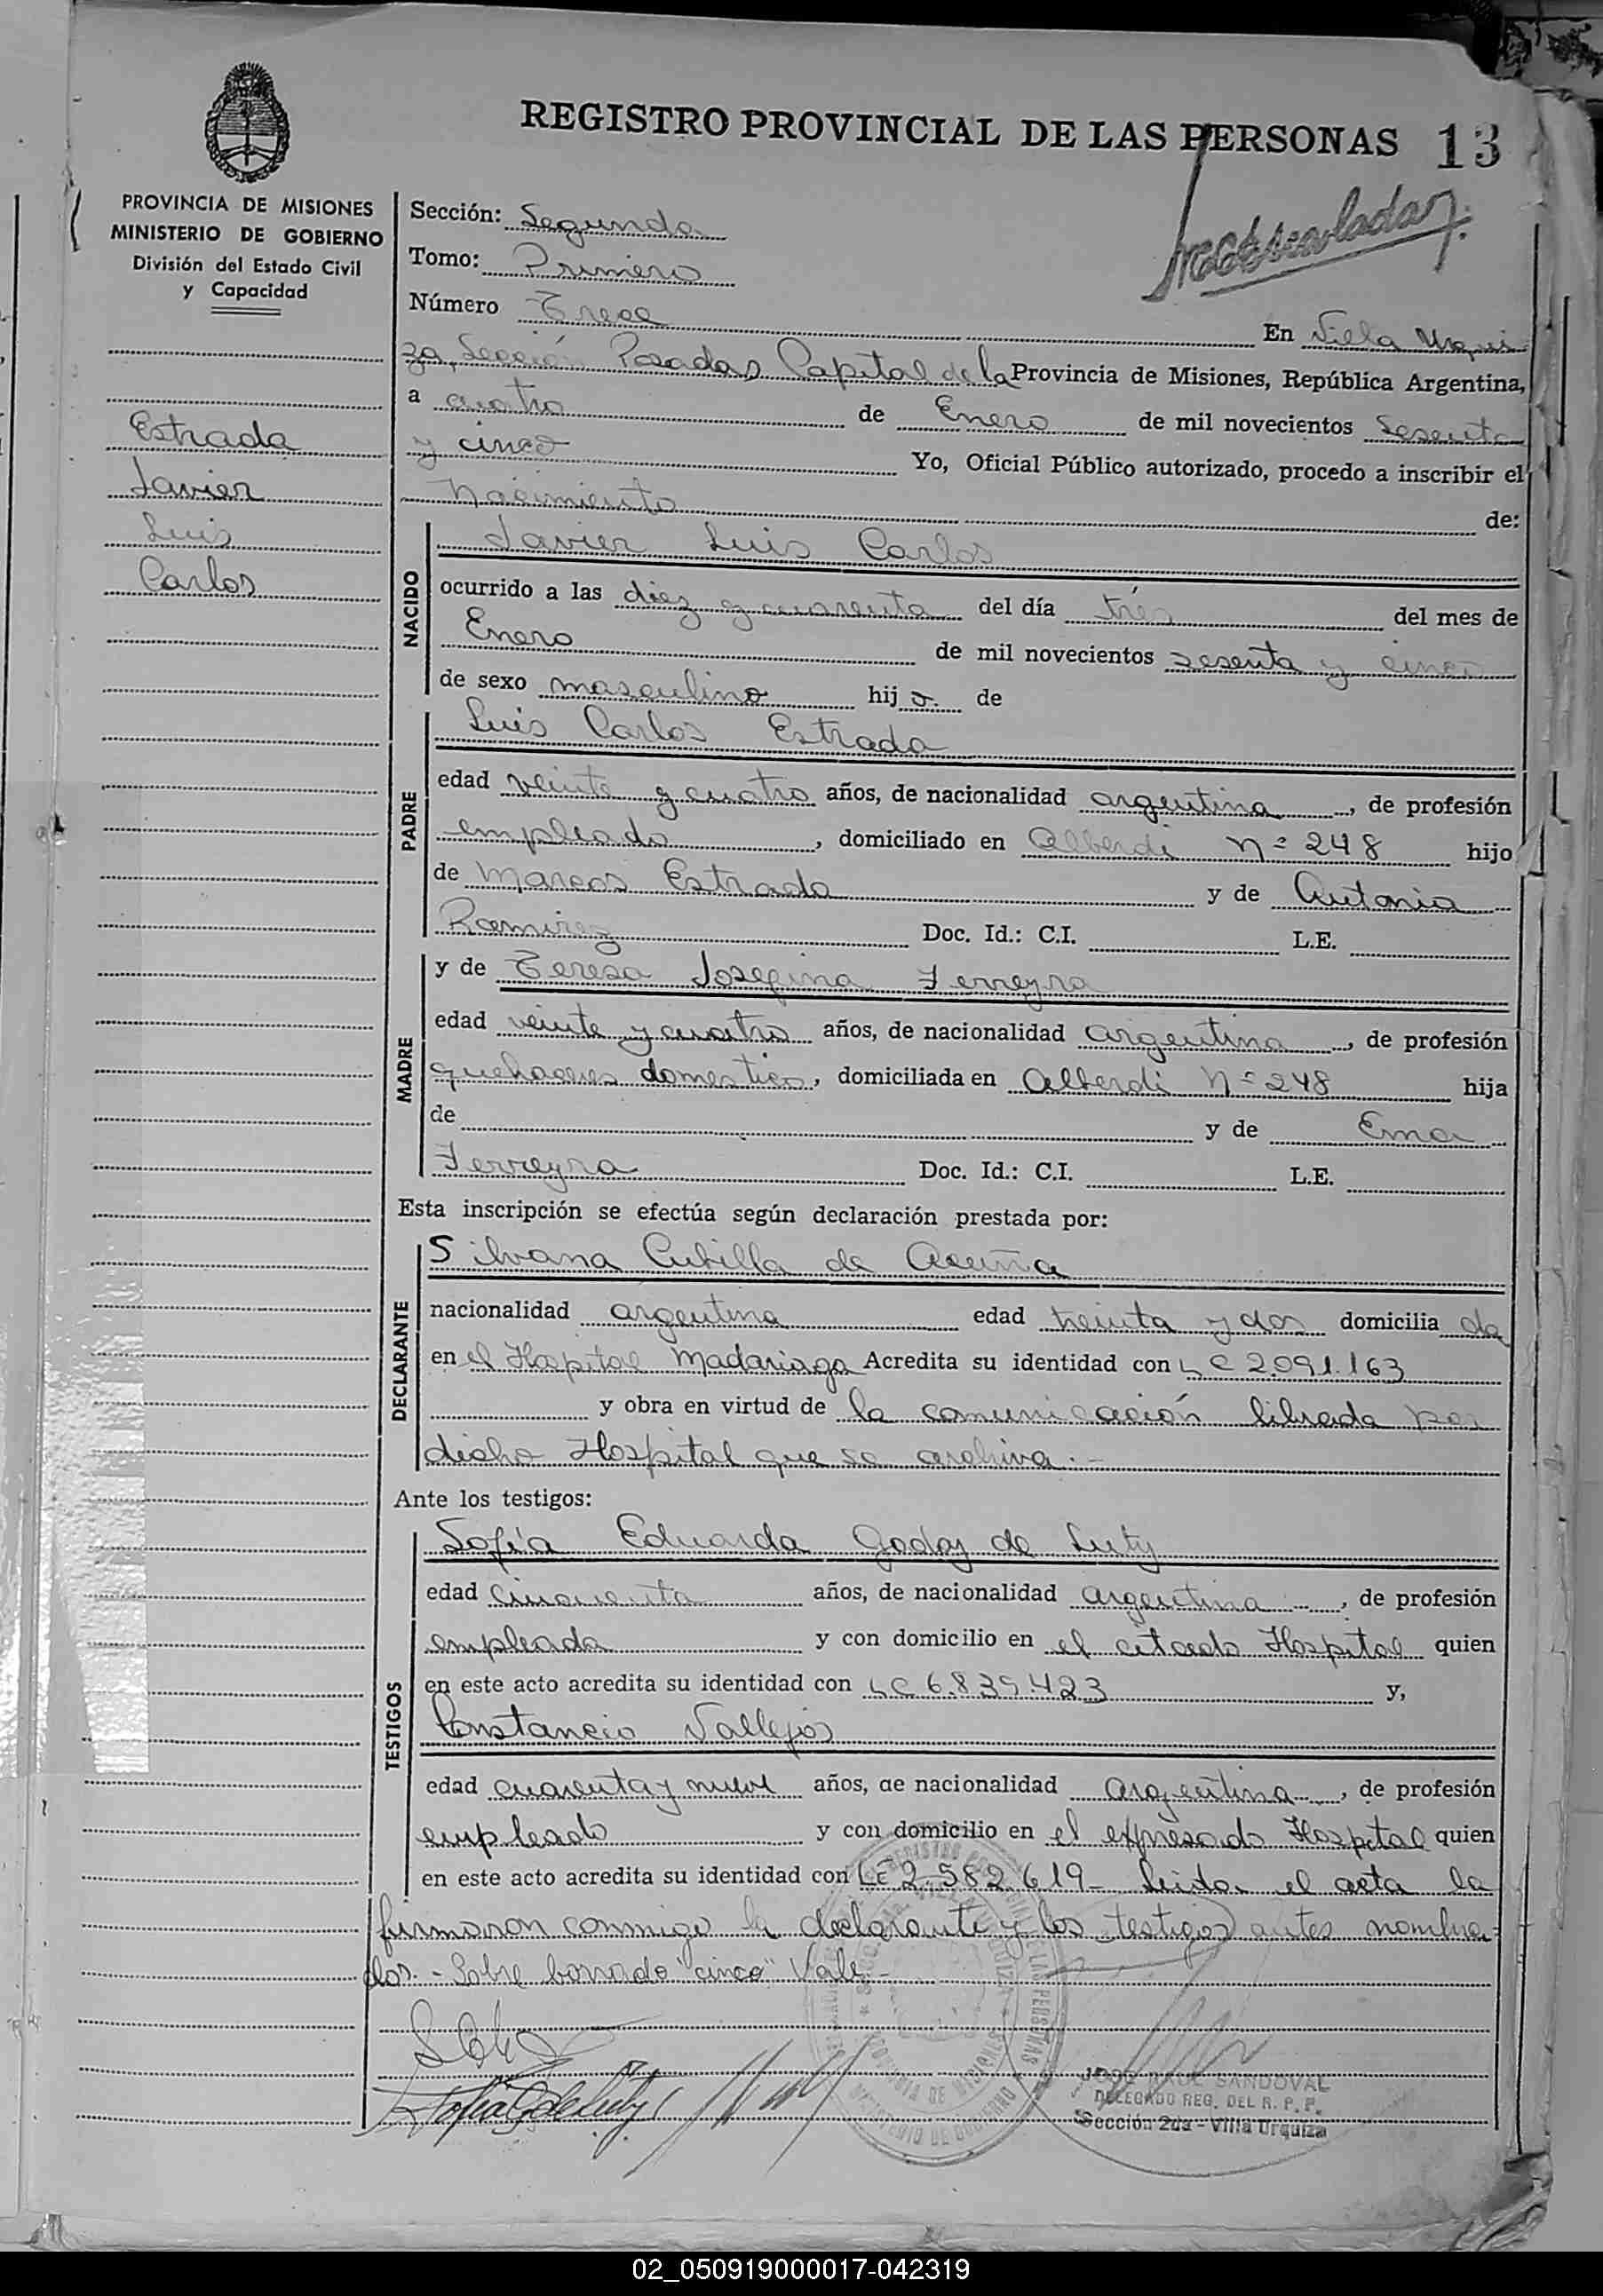 REGISTRO PROVINCIAL DE LAS PERSONAS 13
PROVINCIA DE MISIONES
MINISTERIO DE GOBIERNO
División del Estado Civil
y Capacidad
Estrada
Javier
Luis
Carlos
Sección: Segunda
Tomo: Primero
Número Trece
En Villa Urqui
za, Sección Posadas Capital de la Provincia de Misiones, República Argentina,
a cuatro de Enero de mil novecientos sesenta
y cinco Yo, Oficial Público autorizado, procedo a inscribir el
nacimiento de:
NACIDO
Javier Luis Carlos
ocurrido a las diez y cuarenta del día tres del mes de
Enero de mil novecientos sesenta y cinco
de sexo masculino hij o de
PADRE
Luis Carlos Estrada
edad veinte y cuatro años, de nacionalidad argentina, de profesión
empleado, domiciliado en Alberdi Nº 248 hijo
de Marcos Estrada y de Antonia
Ramirez Doc. Id.: C.I. L.E.
MADRE
y de Teresa Josefina Ferreyra
edad veinte y cuatro años, de nacionalidad argentina, de profesión
quehaceres domestico, domiciliada en Alberdi Nº 248 hija
de y de Ema
Ferreyra Doc. Id.: C.I. L.E.
Esta inscripción se efectúa según declaración prestada por:
DECLARANTE
Silvana Cubilla de Acuña
nacionalidad argentina edad treinta y dos domicilia da
en el Hospital Madariaga Acredita su identidad con LC 2.091.163
y obra en virtud de la comunicación librada por
dicho Hospital que se archiva.-
Ante los testigos:
TESTIGOS
Sofía Eduarda Godoy de Luty
edad cincuenta años, de nacionalidad argentina, de profesión
empleada y con domicilio en el citado Hospital quien
en este acto acredita su identidad con LC 6.839.423 y,
Constancio Vallejos
edad cuarenta y nueve años, de nacionalidad argentina, de profesión
empleado y con domicilio en el expresado Hospital quien
en este acto acredita su identidad con LE 2.582.619- Leida el acta la
firmaron conmigo la declarante y los testigos antes nombra-
dos.- Sobre borrado "cinco" Vale-
JOSE RAUL SANDOVAL
DELEGADO REG. DEL R. P. P.
Sección 2da - Villa Urquiza
02_050919000017-042319